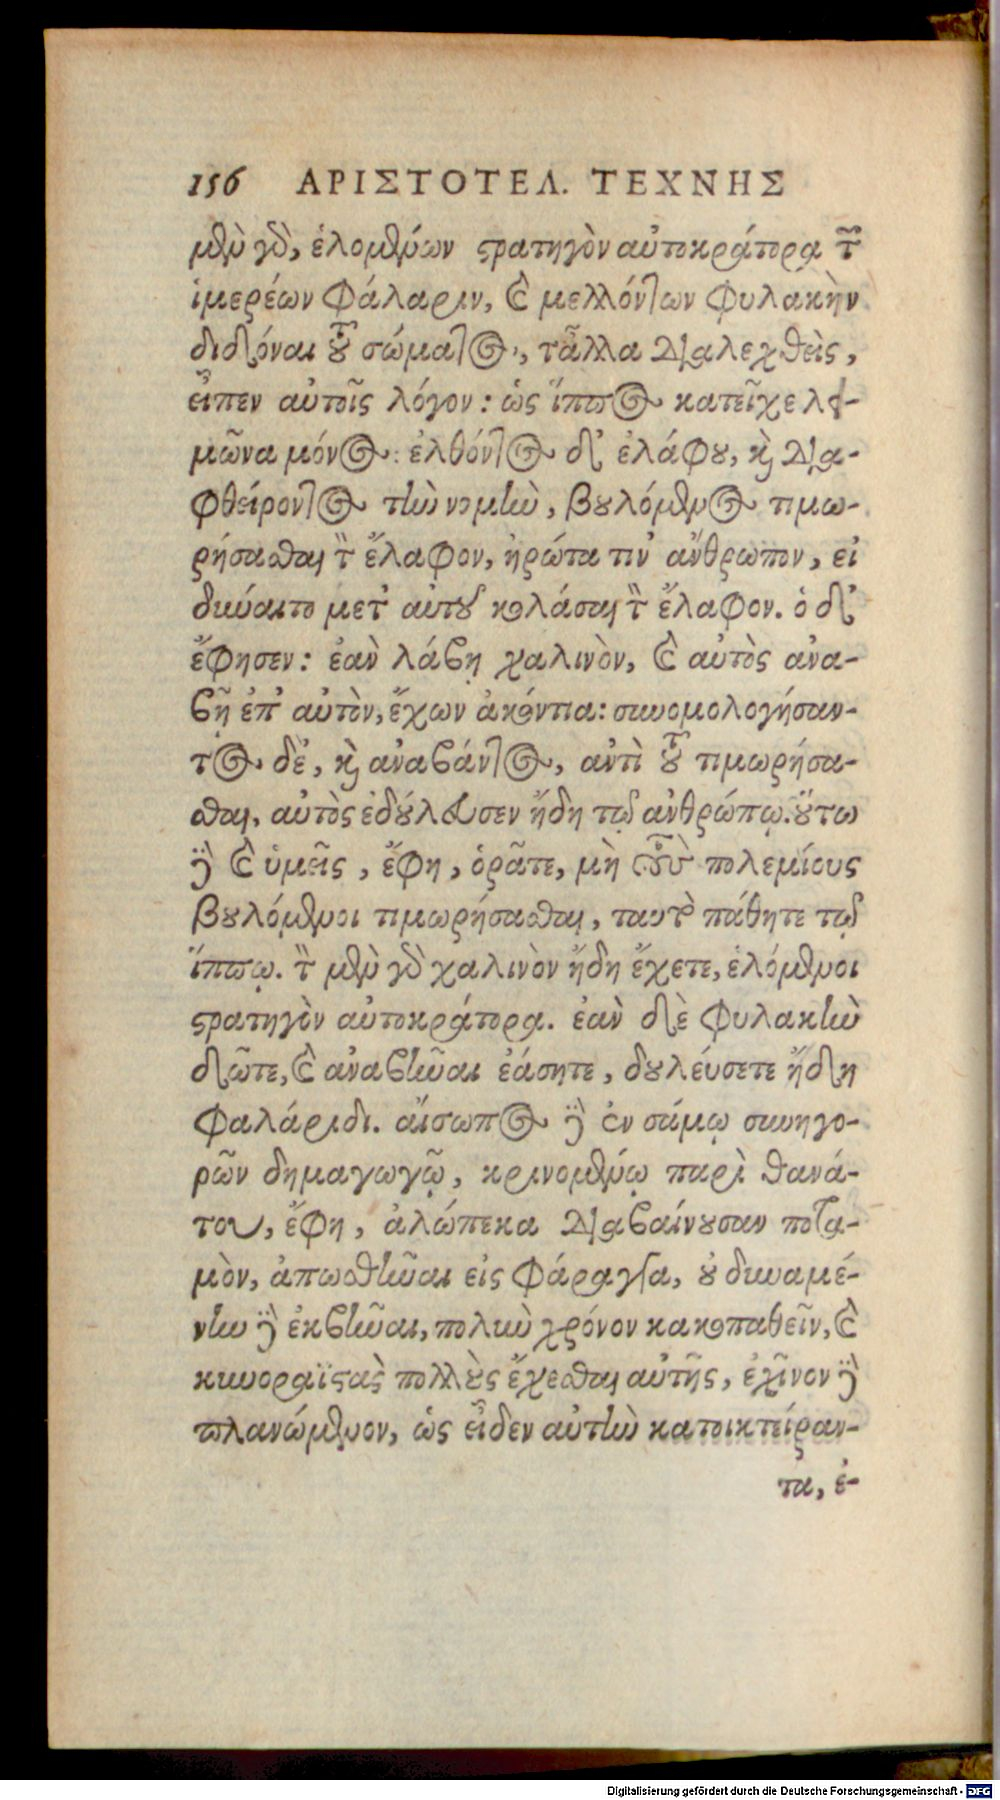 156 ΑΡΙΣΤΟΤΕΛ. ΤΕΧΝΗΣ
μὲν γὸ, ἑλομένων στρατηγὸν αὐτοκράτορα τῶν
ἱμερέων Φάλαριν, καὶ μελλόντων φυλακὴν
διδόναι τοῦ σώματος, τἆλλα διαλεχθεὶς,
εἶπεν αὐτοῖς λόγον: ὡς ἵππος κατεῖχε λει-
μῶνα μόνος: ἐλθόντος δ' ἐλάφου, καὶ δια-
φθείροντος τὴν νομὴν, βουλόμενος τιμω-
ρήσασθαι τὸν ἔλαφον, ἠρώτα τιν' ἄνθρωπον, εἰ
δύναιτο μετ' αὐτοῦ κολάσαι τὸν ἔλαφον. ὁ δ'
ἔφησεν: ἐὰν λάβῃ χαλινὸν, καὶ αὐτὸς ἀνα-
βῇ ἐπ' αὐτὸν, ἔχων ἀκόντια: συνομολογήσαν-
τος δὲ, καὶ ἀναβάντος, ἀντὶ τοῦ τιμωρήσα-
σθαι, αὐτὸς ἐδούλευσεν ἤδη τῷ ἀνθρώπῳ. οὕτω
δὲ καὶ ὑμεῖς, ἔφη, ὁρᾶτε, μὴ τοὺς πολεμίους
βουλόμενοι τιμωρήσασθαι, ταυτὸ πάθητε τῷ
ἵππῳ. τὸν μὲν γὸ χαλινὸν ἤδη ἔχετε, ἑλόμενοι
στρατηγὸν αὐτοκράτορα. ἐὰν δὲ φυλακὴν
δῶτε, καὶ ἀναβῆναι ἐάσητε, δουλεύσετε ἤδη
Φαλάριδι. αἴσωπος δὲ ἐν σάμῳ συνηγο-
ρῶν δημαγωγῷ, κρινομένῳ περὶ θανά-
του, ἔφη, ἀλώπεκα διαβαίνουσαν ποτα-
μὸν, ἀπωσθῆναι εἰς φάραγγα, οὐ δυναμέ-
νην δὲ ἐκβῆναι, πολὺν χρόνον κακοπαθεῖν, καὶ
κυνοραϊστὰς πολλοὺς ἔχεσθαι αὐτῆς, ἐχῖνον δὲ
πλανώμενον, ὡς εἶδεν αὐτὴν κατοικτείραν-
τα, ἐ-
Digitalisierung gefördert durch die Deutsche Forschungsgemeinschaft - DFG